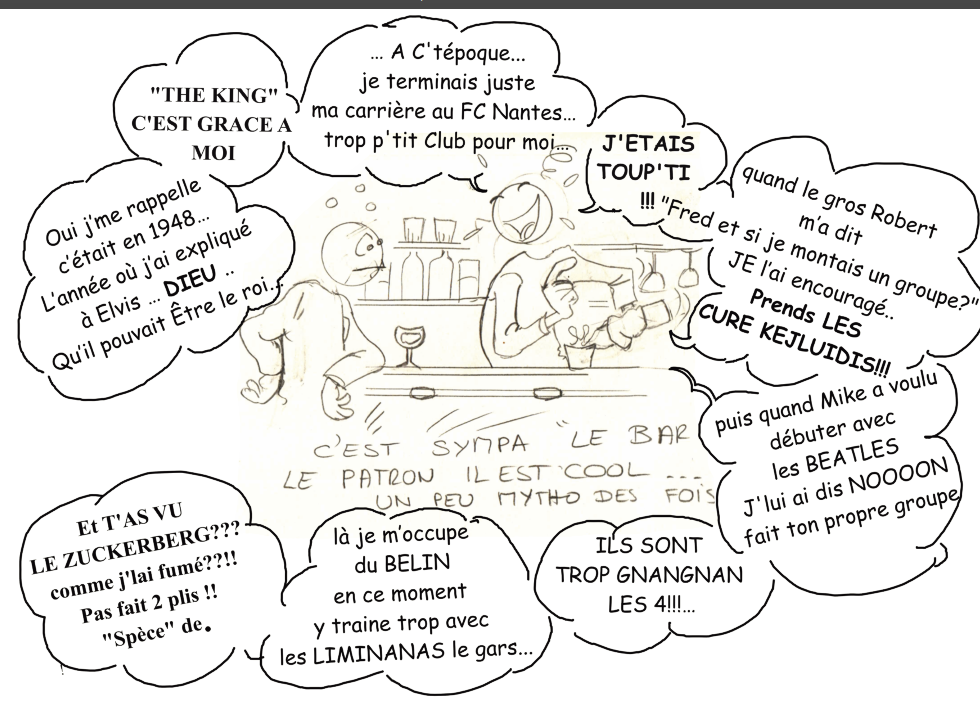 "THE KING"
C'EST GRACE A
MOI
... A C'tépoque...
je terminais juste
ma carrière au FC Nantes...
trop p'tit Club pour moi...
J'ETAIS
TOUP'TI
!!!
Oui j'me rappelle
c'était en 1948...
L'année où j'ai expliqué
à Elvis ... DIEU ..
Qu'il pouvait Être le roi...
quand le gros Robert
m'a dit
"Fred et si je montais un groupe?"
JE l'ai encouragé..
Prends LES
CURE KEJLUIDIS!!!
puis quand Mike a voulu
débuter avec
les BEATLES
J'lui ai dis NOOOON
fait ton propre groupe
C'EST SYMPA "LE BAR
LE PATRON IL EST COOL ....
UN PEU MYTHO DES FOIS
Et T'AS VU
LE ZUCKERBERG???
comme j'lai fumé??!!
Pas fait 2 plis !!
"Spèce" de.
là je m'occupe
du BELIN
en ce moment
y traine trop avec
les LIMINANAS le gars...
ILS SONT
TROP GNANGNAN
LES 4!!!...